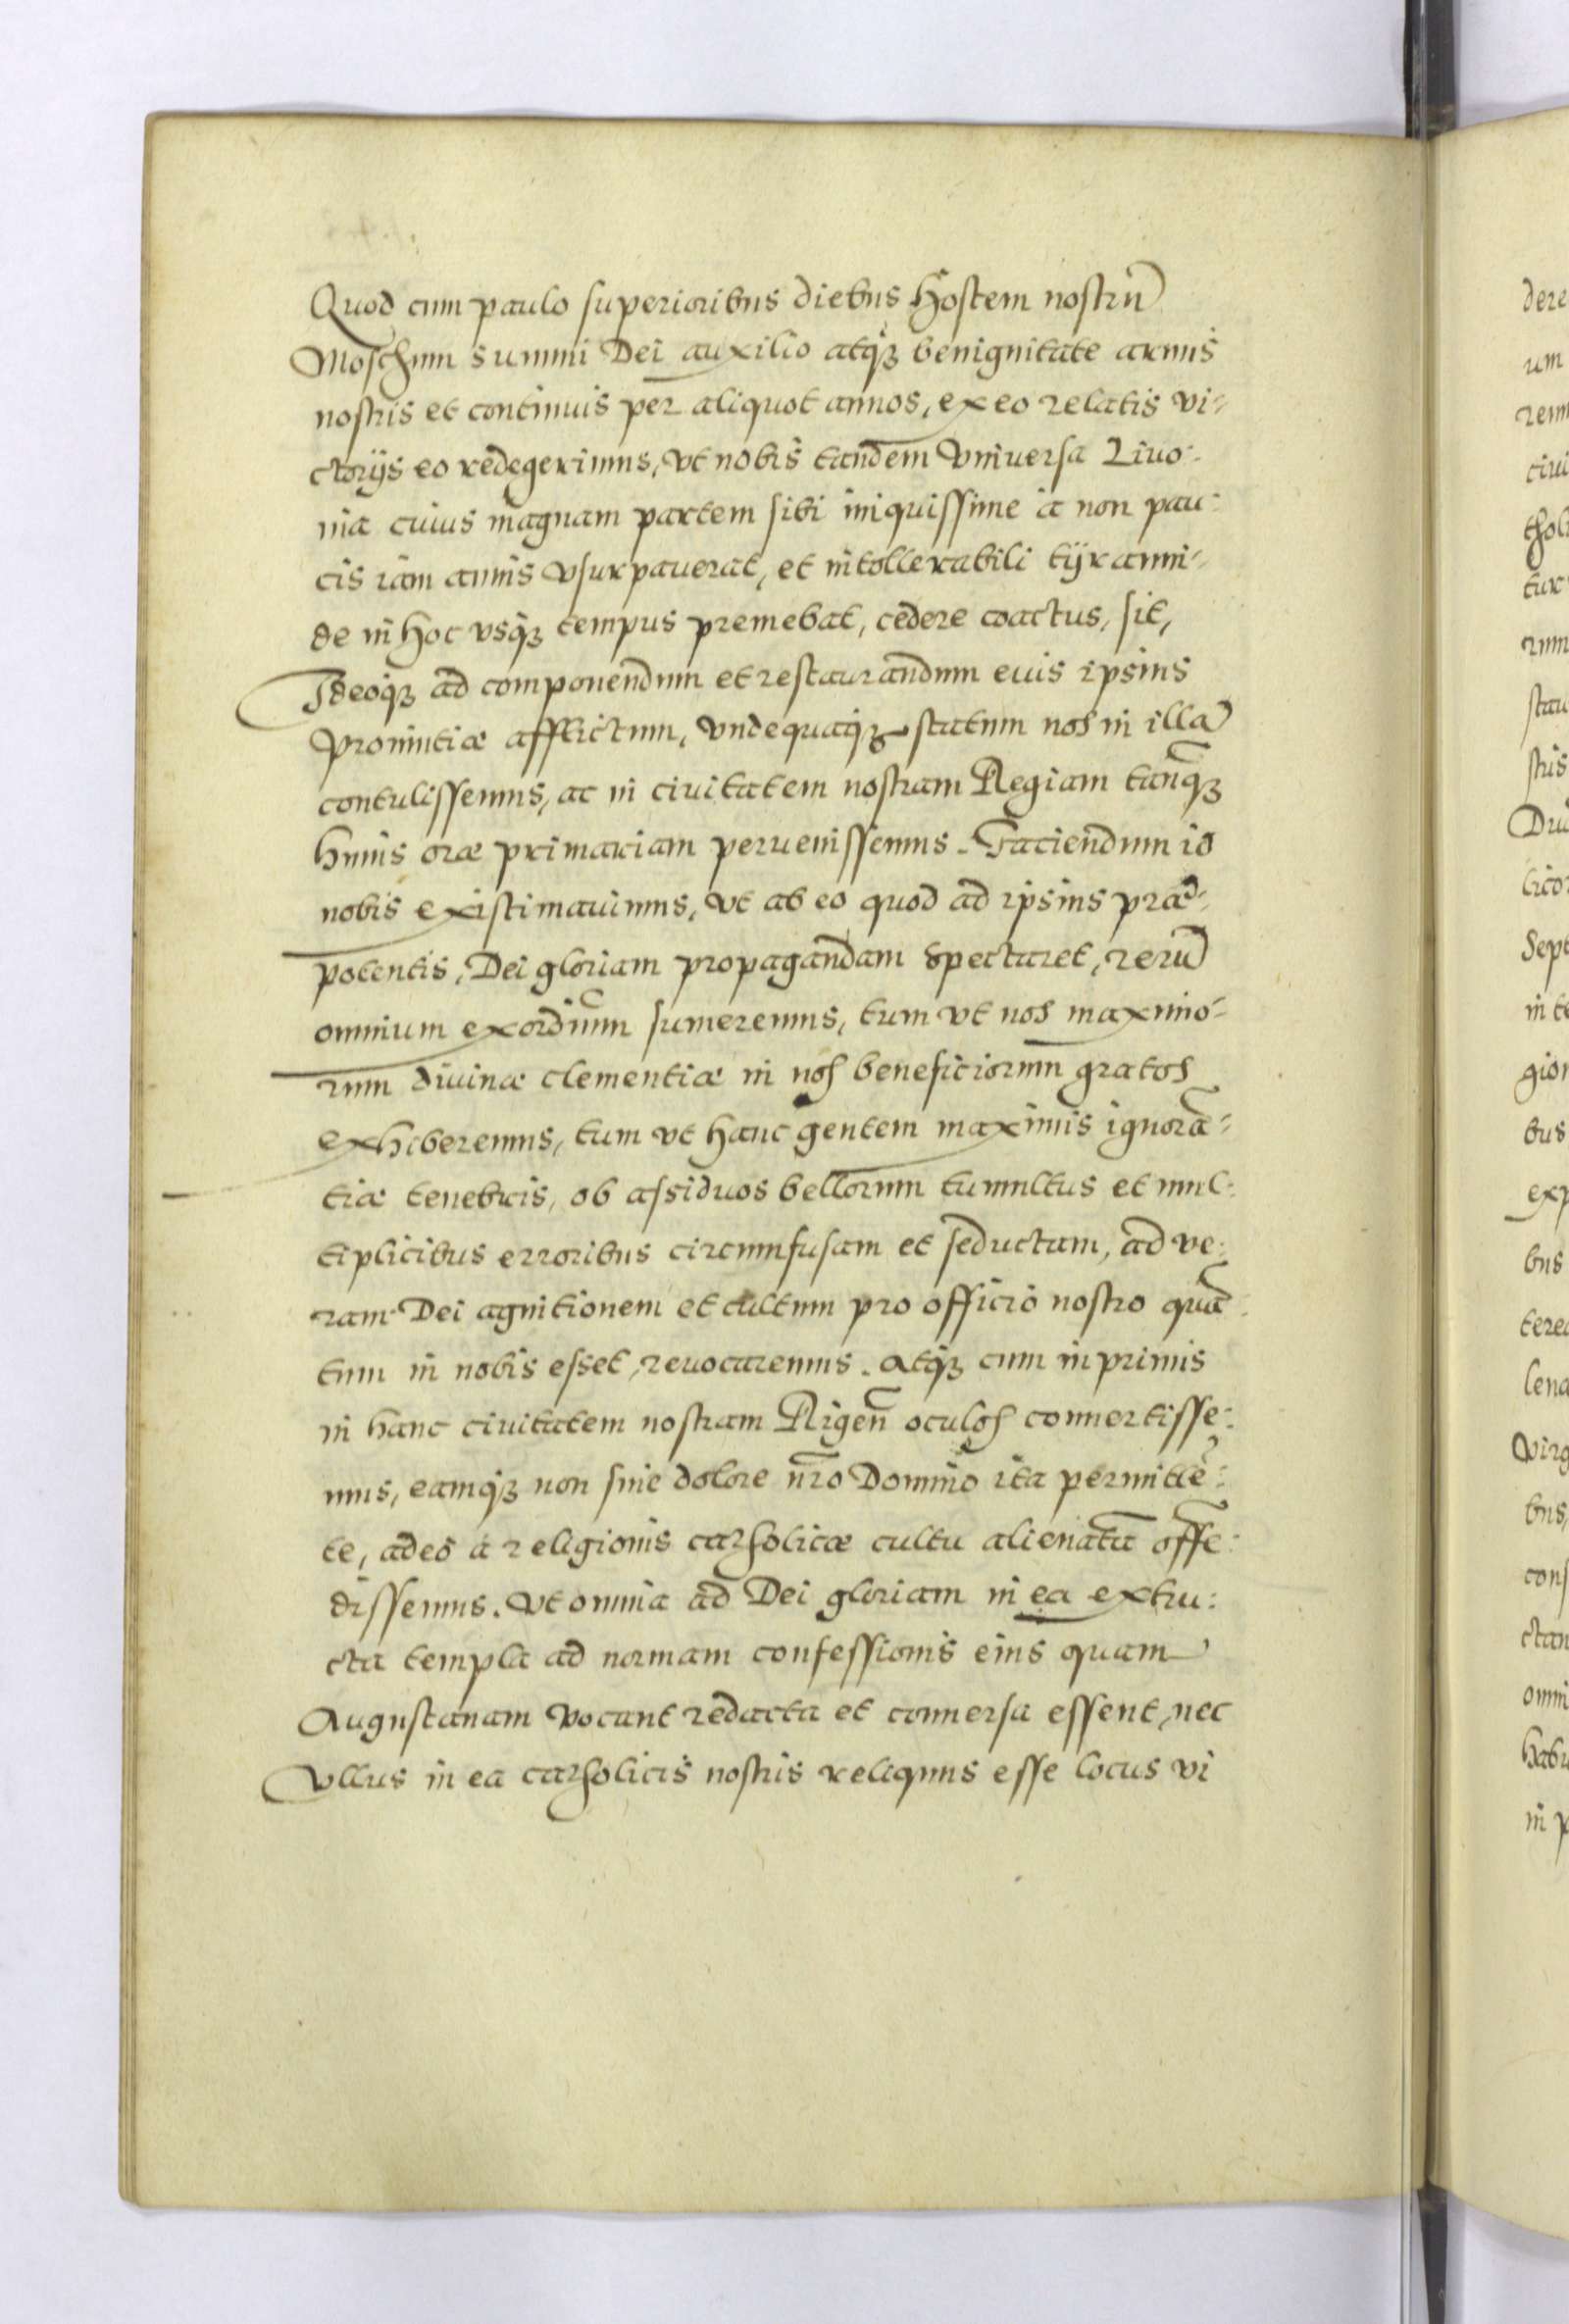 Quod cum paulo superioribus diebus Hostem nostrũ
Moschum summi Dei auxilio atqʒ benignitate armis
nostris et continuis per aliquot annos, ex eo relatis vi-
ctorijs eo redegerimus, vt nobis tandem Vniuersa Liuo-
nia cuius magnam partem sibi iniquissime à non pau-
cis iam annis vsurpauerat, et intollerabili tÿranni-
de in hoc vsqʒ tempus premebat, cedere coactus, sit,
Ideoqʒ ad componendum et restaurandum euis ipsius
Prouintiæ afflictum, vndequaqʒ statum nos in illã
contulissemus, ac in ciuitatem nostram Regiam tanq̃ʒ
huius oræ primariam peruenissemus. Faciendum id
nobis existimauimus, vt ab eo quod ad ipsius præ-
potentis, Dei gloriam propagandam spectaret, rerũ
omnium exordiũm sumeremus, tum vt nos maximo-
rum diuinæ clementiæ in nos beneficiorum gratos
exhiberemus, tum vt hanc gentem maximis ignorã-
tiæ tenebris, ob assiduos bellorum tumultus et mul-
tiplicibus erroribus circumfusam et seductam, ad ve-
ram Dei agnitionem et cultum pro officio nostro quã-
tum in nobis esset, reuocaremus. Atqʒ cum inprimis
in hanc ciuitatem nostram Rigeñ oculos conuertisse-
mus, eamqʒ non sine dolore nr̃o Domino ita permittẽ-
te, adeo à religionis catholicæ cultu alienatã offẽ-
dissemus. Vt omnia ad Dei gloriam in ea extru-
cta templa ad normam confessionis eius quam
Augustanam vocant redacta et conuersa essent, nec
Vllus in ea catholicis nostris reliquus esse locus vi
dere
um
remu
ciui
thol
tur
rum
stau
stris
Dru
licor
Sept
in te
gion
bus
exp
bus
terea
lena
Virg
bus,
cons
ctan
omni
habu
in p